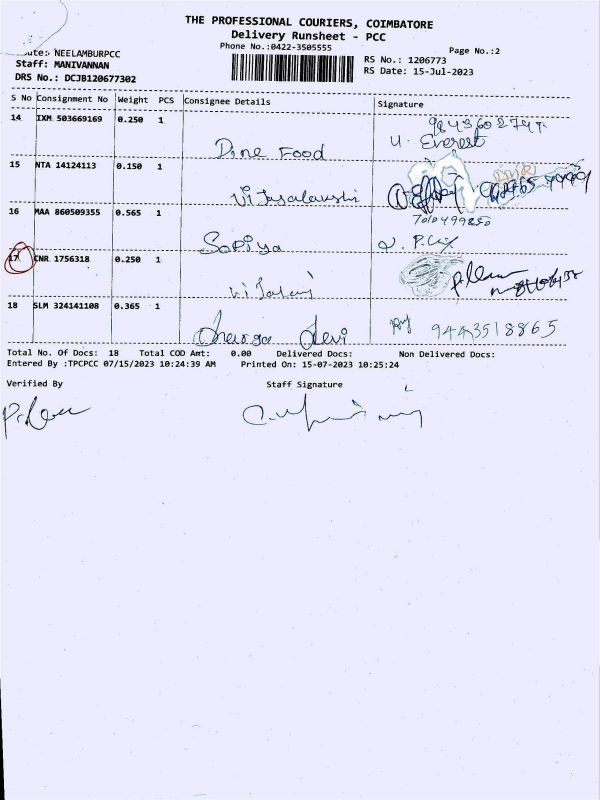 THE PROFESSIONAL COURIERS, COIMBATORE
Delivery Runsheet - PCC
Phone No.:0422-3505555
Page No.:2
NEELAMBURPCC
Staff: MANIVANNAN
DRS No.: DCJB120677302
RS No.: 1206773
RS Date: 15-Jul-2023
S No Consignment No Weight PCS Consignee Details Signature
14 IXM 503669169 0.250 1
Dine Food U. Everest
15 NTA 14124113 0.150 1
16 MAA 860509355 0.565 1
7010499250
Sopiya
17 CNR 1756318 0.250 1
18 SLM 324141108 0.365 1
Devi 9443518865
Total No. Of Docs: 18 Total COD Amt: 0.00 Delivered Docs: Non Delivered Docs:
Entered By :TPCPCC 07/15/2023 10:24:39 AM Printed On: 15-07-2023 10:25:24
Verified By Staff Signature